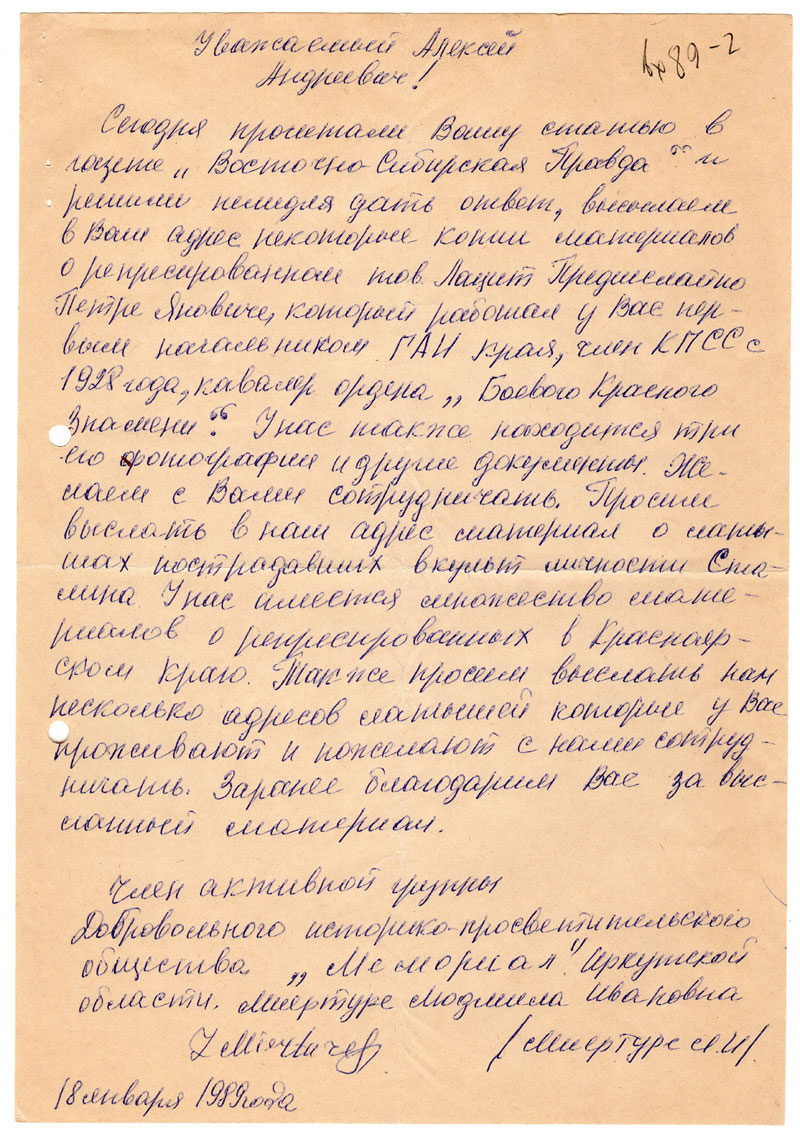 Уважаемый Алексей
Андреевич!
вх 89-2
Сегодня прочитали Вашу статью в
газете „Восточно-Сибирская Правда“ и
решили немедля дать ответ, высылаем
в Ваш адрес некоторые копии материалов
о репресированном тов. Лацит
Петре Яновиче, который работал у Вас пер-
вым начальником ГАИ края, член КПСС с
1928 года, кавалер ордена „Боевого Красного
Знамени“. У нас также находится три
его фотографии и другие документы. Же-
лаем с Вами сотрудничать. Просим
выслать в наш адрес материал о латы-
шах пострадавших в культ личности Ста-
лина. У нас имеется множество мате-
риалов о репресированных в Краснояр-
ском краю. Также просим выслать нам
несколько адресов латышей которые у Вас
проживают и пожелают с нами сотруд-
ничать. Заранее благодарим Вас за выс-
ланный материал.
Член активной группы
Добровольного историко-просветительского
общества „Мемориал“ Иркутской
области. Миертуре Людмила Ивановна
/Миертуре Л.И/.
18 января 1989 года